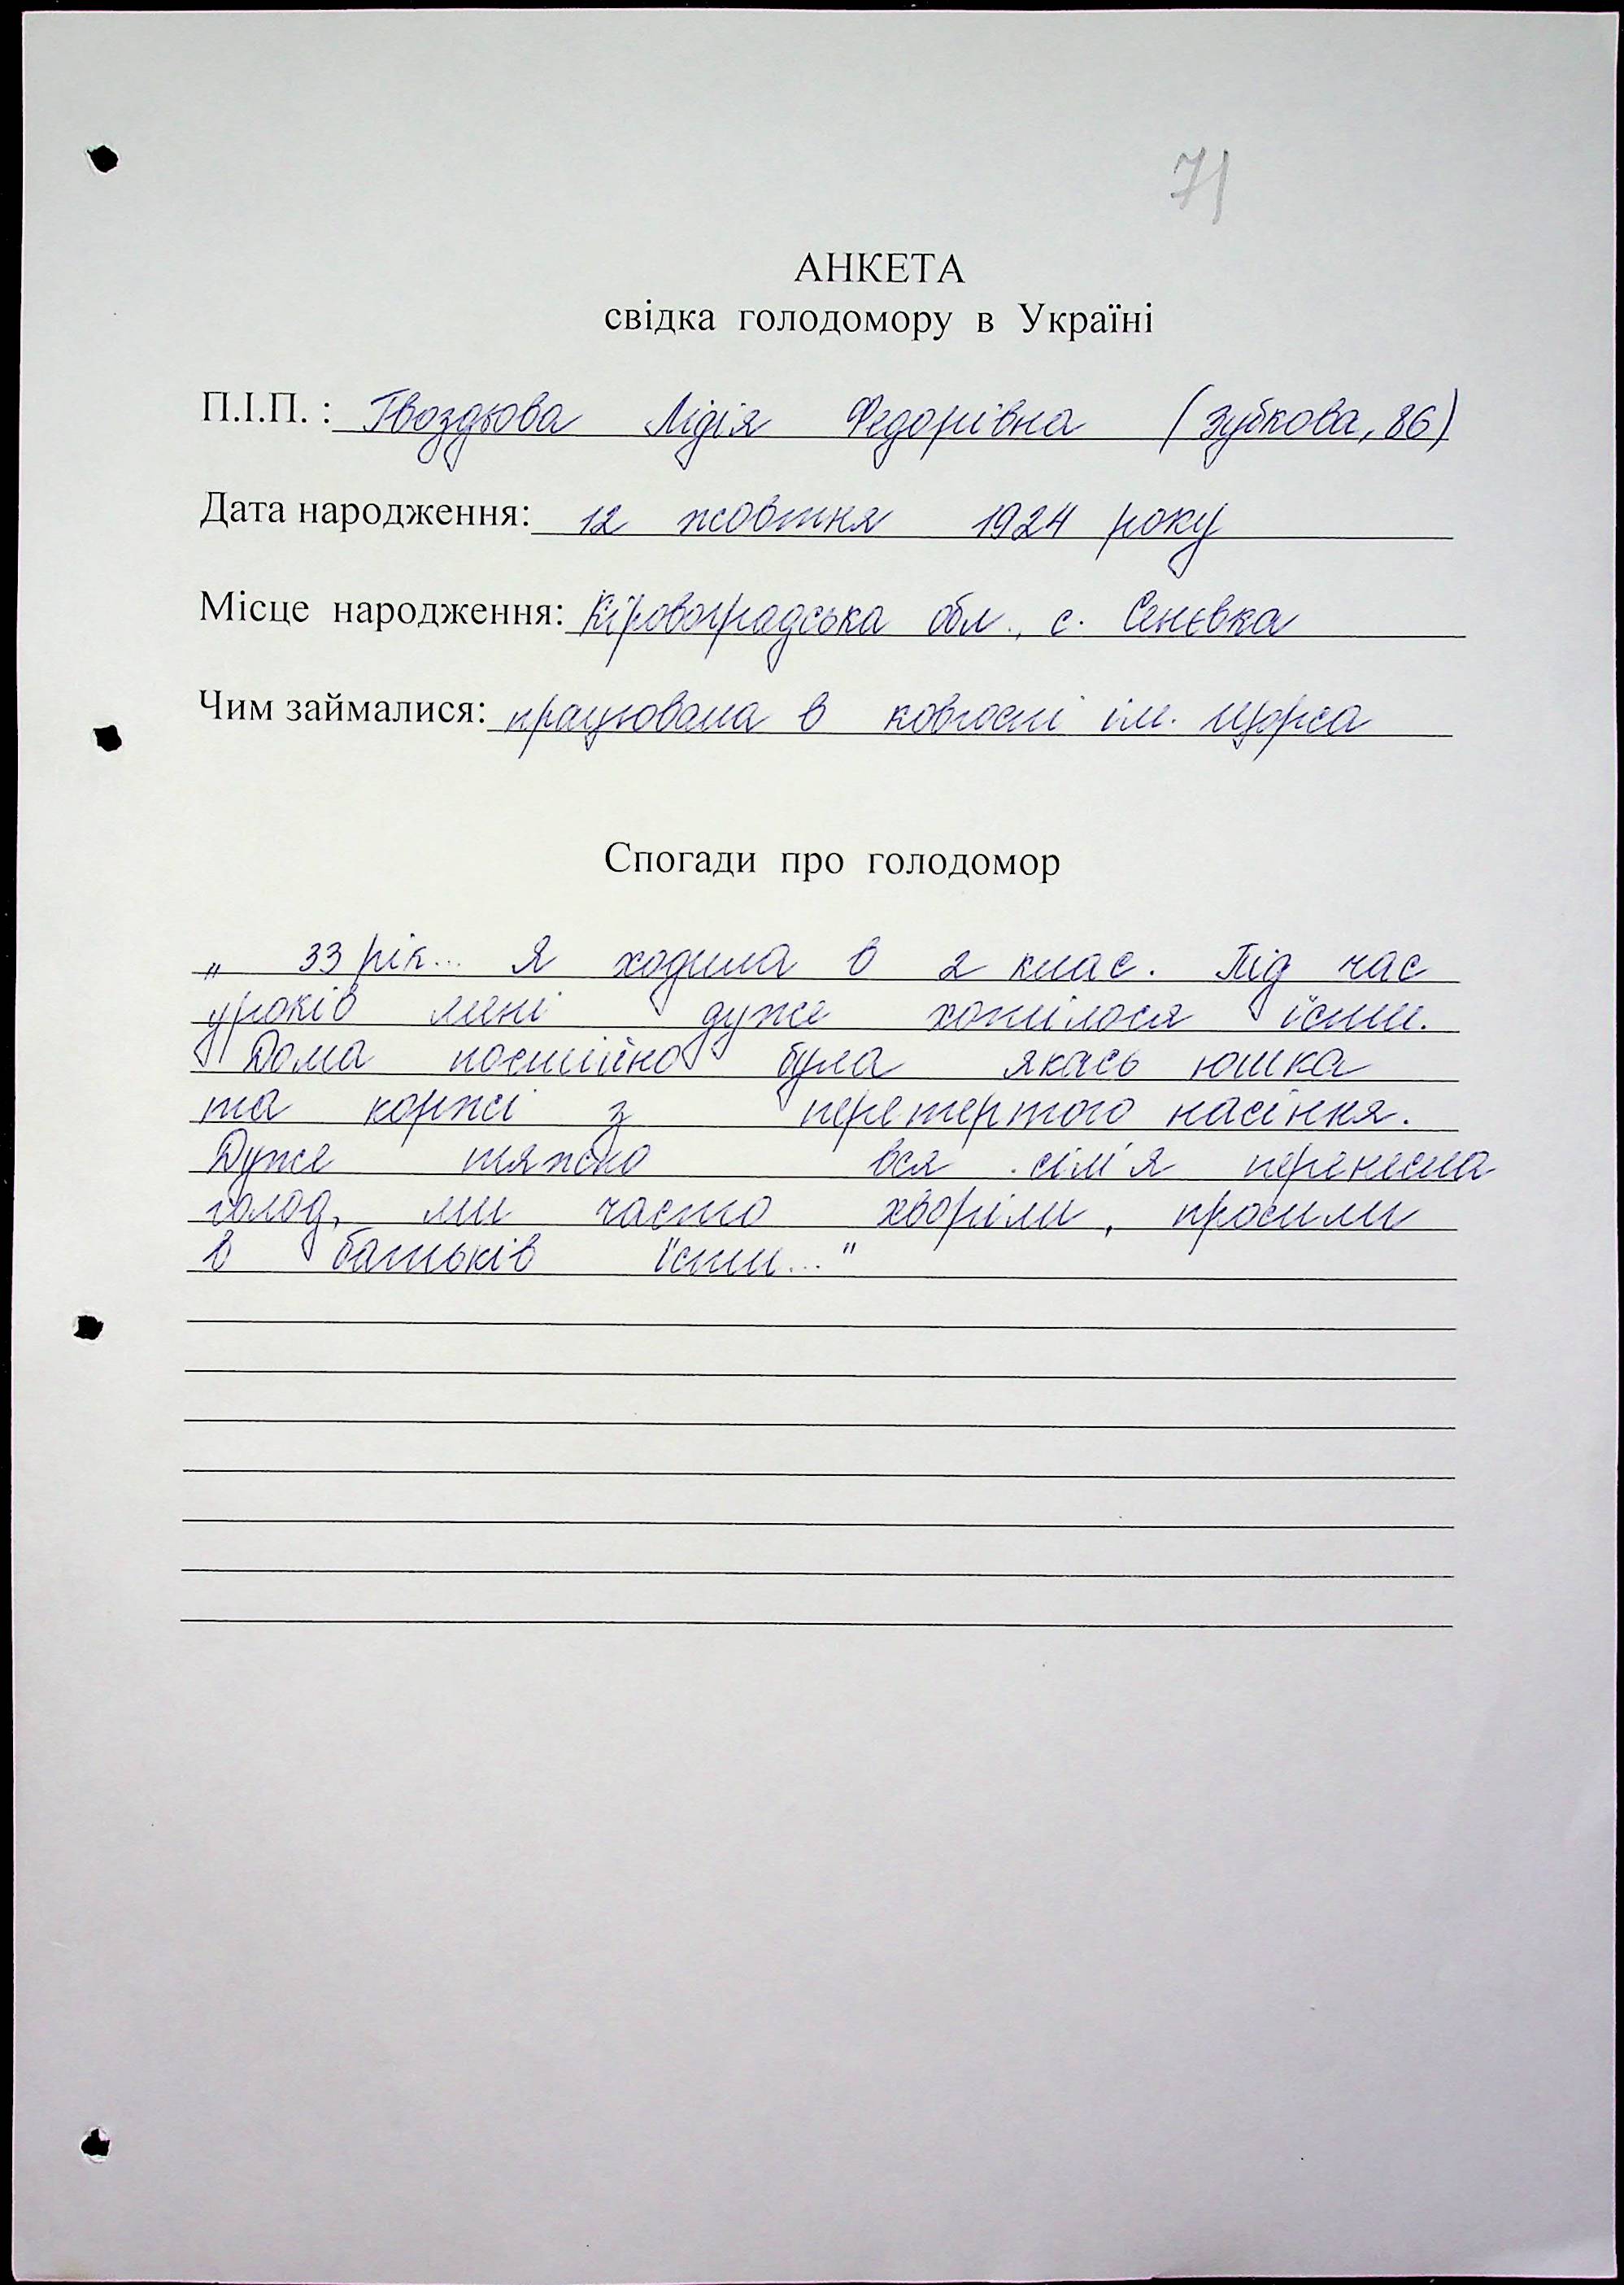 71
АНКЕТА
свідка голодомору в Україні
П.І.П. : Гвоздьова Лідія Федорівна (Зубкова, 86)
Дата народження: 12 жовтня 1924 року
Місце народження: Кіровоградська обл., с. Сенєвка
Чим займалися: працювала в ковгоспі ім. Щорса
Спогади про голодомор
„ 33 рік... Я ходила в 2 клас. Під час
уроків мені дуже хотілося їсти.
Дома постійно була якась юшка
та коржі з перетертого насіння.
Дуже тяжко вся сім'я перенесла
голод, ми часто хворіли, просили
в батьків їсти..."